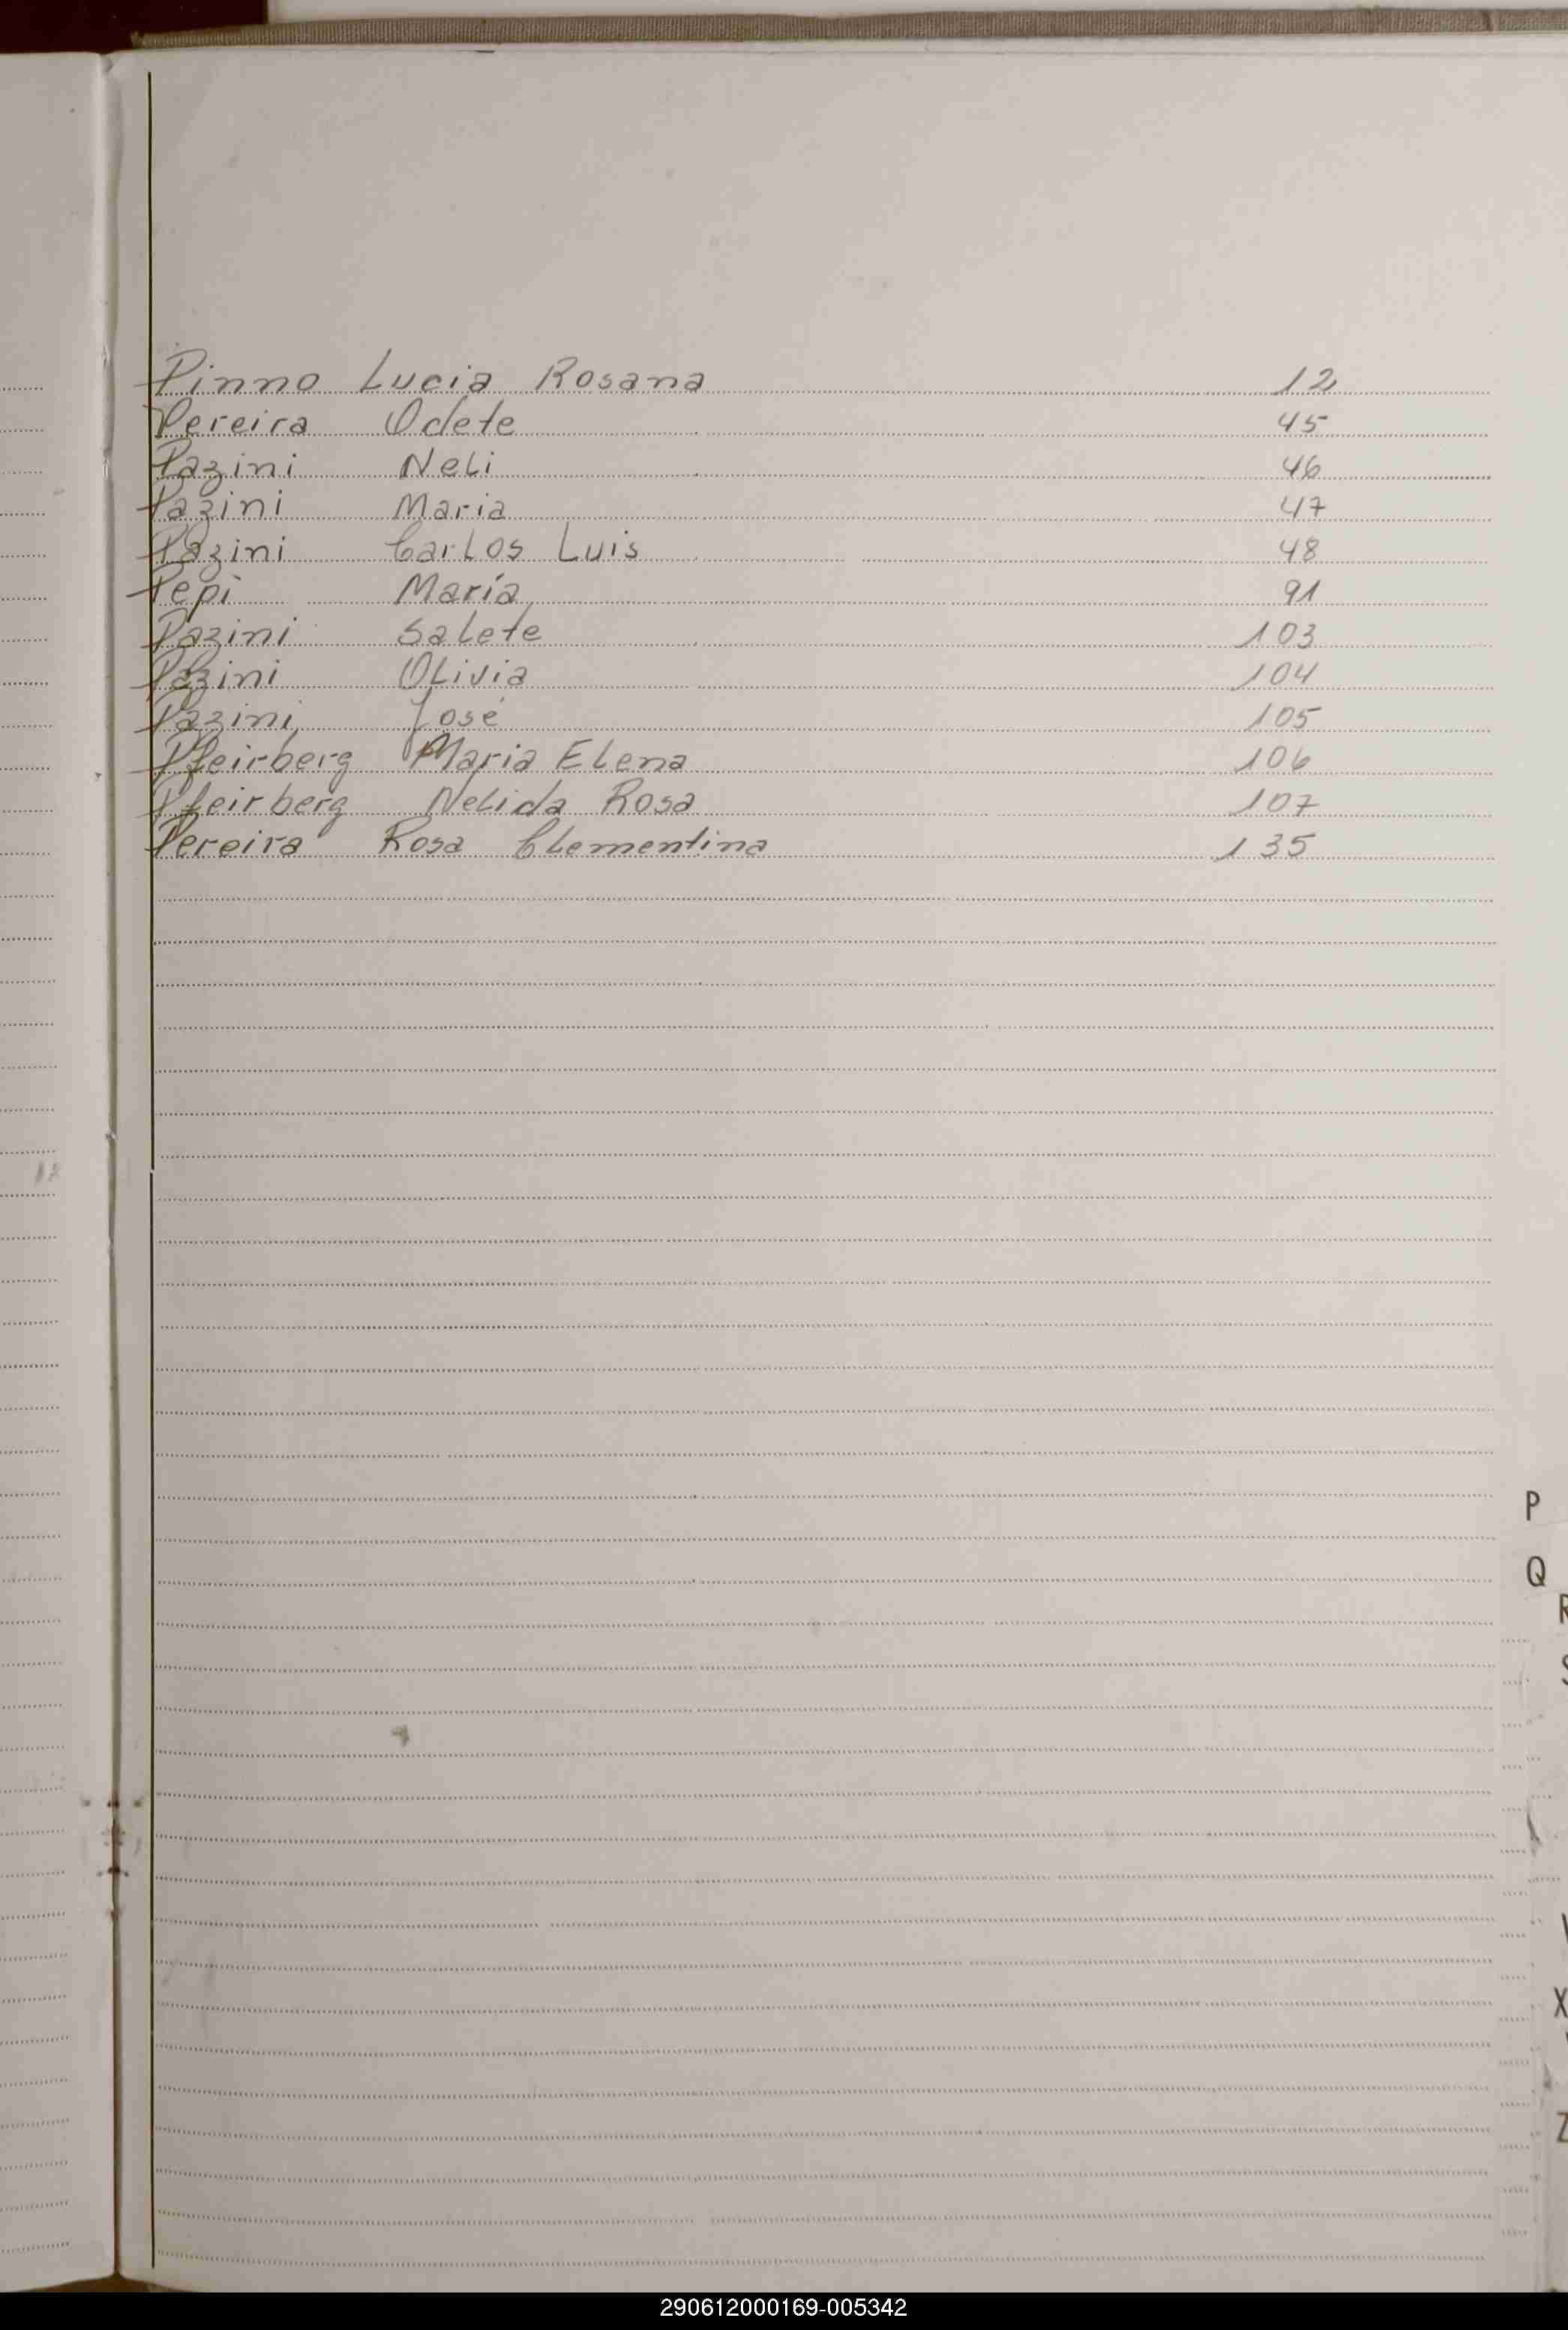 Pinno Lucia Rosana 12
Pereira Odete 45
Pazini Neli 46
Pazini Maria 47
Pazini Carlos Luis 48
Pepi María 91
Pazini Salete 103
Pazini Olivia 104
Pazini José 105
Pfeirberg Maria Elena 106
Pfeirberg Nelida Rosa 107
Pereira Rosa Clementina 135
P
Q
R
S
X
Z
290612000169-005342